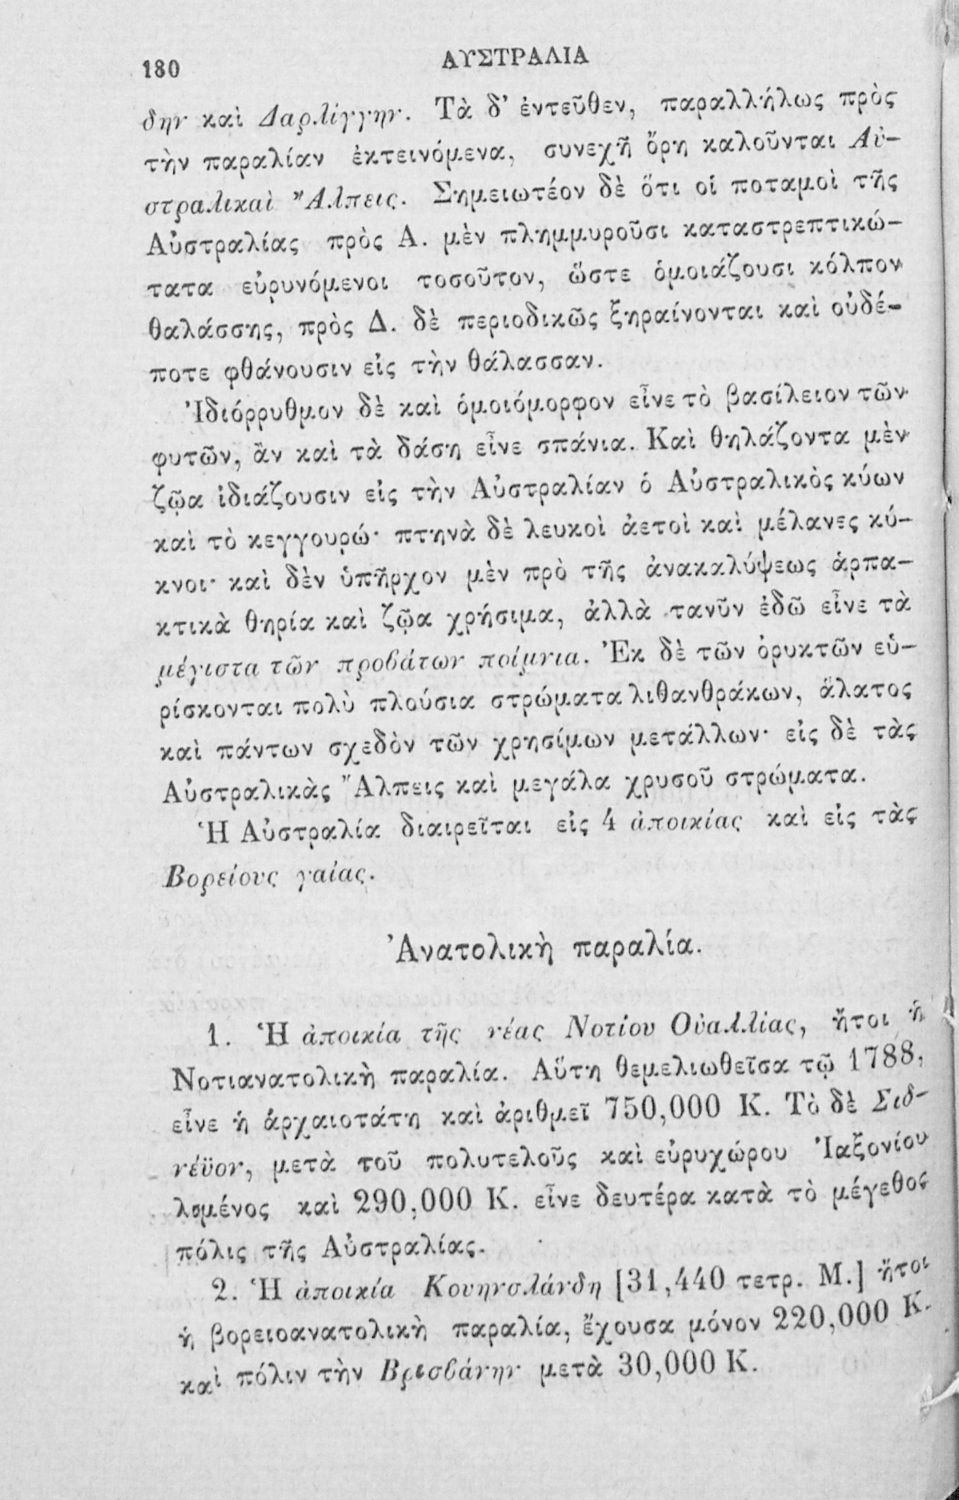 180
ΑΥΣΤΡΑΛΙΑ
δην καὶ Δαρλίγγην. Τὰ δ’ ἐντεῦθεν, παραλλήλως πρὸς
τὴν παραλίαν ἐκτεινόμενα, συνεχῆ ὄρη καλοῦνται Αὐ-
στραλικαὶ Ἄλπεις. Σημειωτέον δὲ ὅτι οἱ ποταμοὶ τῆς
Αὐστραλίας πρὸς Α. μὲν πλημμυροῦσι καταστρεπτικώ-
τατα εὐρυνόμενοι τοσοῦτον, ὥστε ὁμοιάζουσι κόλπον
θαλάσσης, πρὸς Δ. δὲ περιοδικῶς ξηραίνονται καὶ οὐδέ-
ποτε φθάνουσιν εἰς τὴν θάλασσαν.
Ἰδιόρρυθμον δὲ καὶ ὁμοιόμορφον εἶνε τὸ βασίλειον τῶν
φυτῶν, ἂν καὶ τὰ δάση εἶνε σπάνια. Καὶ θηλάζοντα μὲν
ζῷα ἰδιάζουσιν εἰς τὴν Αὐστραλίαν ὁ Αὐστραλικὸς κύων
καὶ τὸ κεγγουρώ· πτηνὰ δὲ λευκοὶ ἀετοὶ καὶ μέλανες κύ-
κνοι· καὶ δὲν ὑπῆρχον μὲν πρὸ τῆς ἀνακαλύψεως ἁρπα-
κτικὰ θηρία καὶ ζῷα χρήσιμα, ἀλλὰ τανῦν ἐδῶ εἶνε τὰ
μέγιστα τῶν προβάτων ποίμνια. Ἐκ δὲ τῶν ὀρυκτῶν εὑ-
ρίσκονται πολὺ πλούσια στρώματα λιθανθράκων, ἅλατος
καὶ πάντων σχεδὸν τῶν χρησίμων μετάλλων· εἰς δὲ τὰς
Αὐστραλικὰς Ἄλπεις καὶ μεγάλα χρυσοῦ στρώματα.
Ἡ Αὐστραλία διαιρεῖται εἰς 4 ἀποικίας καὶ εἰς τὰς
Βορείους γαίας.
Ἀνατολικὴ παραλία.
1. Ἡ ἀποικία τῆς νέας Νοτίου Οὐαλλίας, ἤτοι ἡ
Νοτιανατολικὴ παραλία. Αὕτη θεμελιωθεῖσα τῷ 1788,
εἶνε ἡ ἀρχαιοτάτη καὶ ἀριθμεῖ 750,000 Κ. Τὸ δὲ Σιδ-
νέϋον, μετὰ τοῦ πολυτελοῦς καὶ εὐρυχώρου Ἰαξονίου
λιμένος καὶ 290,000 Κ. εἶνε δευτέρα κατὰ τὸ μέγεθος
πόλις τῆς Αὐστραλίας.
2. Ἡ ἀποικία Κουηνσλάνδη [31,440 τετρ. Μ.] ἤτοι
ἡ βορειοανατολικὴ παραλία, ἔχουσα μόνον 220,000 Κ.
καὶ πόλιν τὴν Βρισβάνην μετὰ 30,000 Κ.